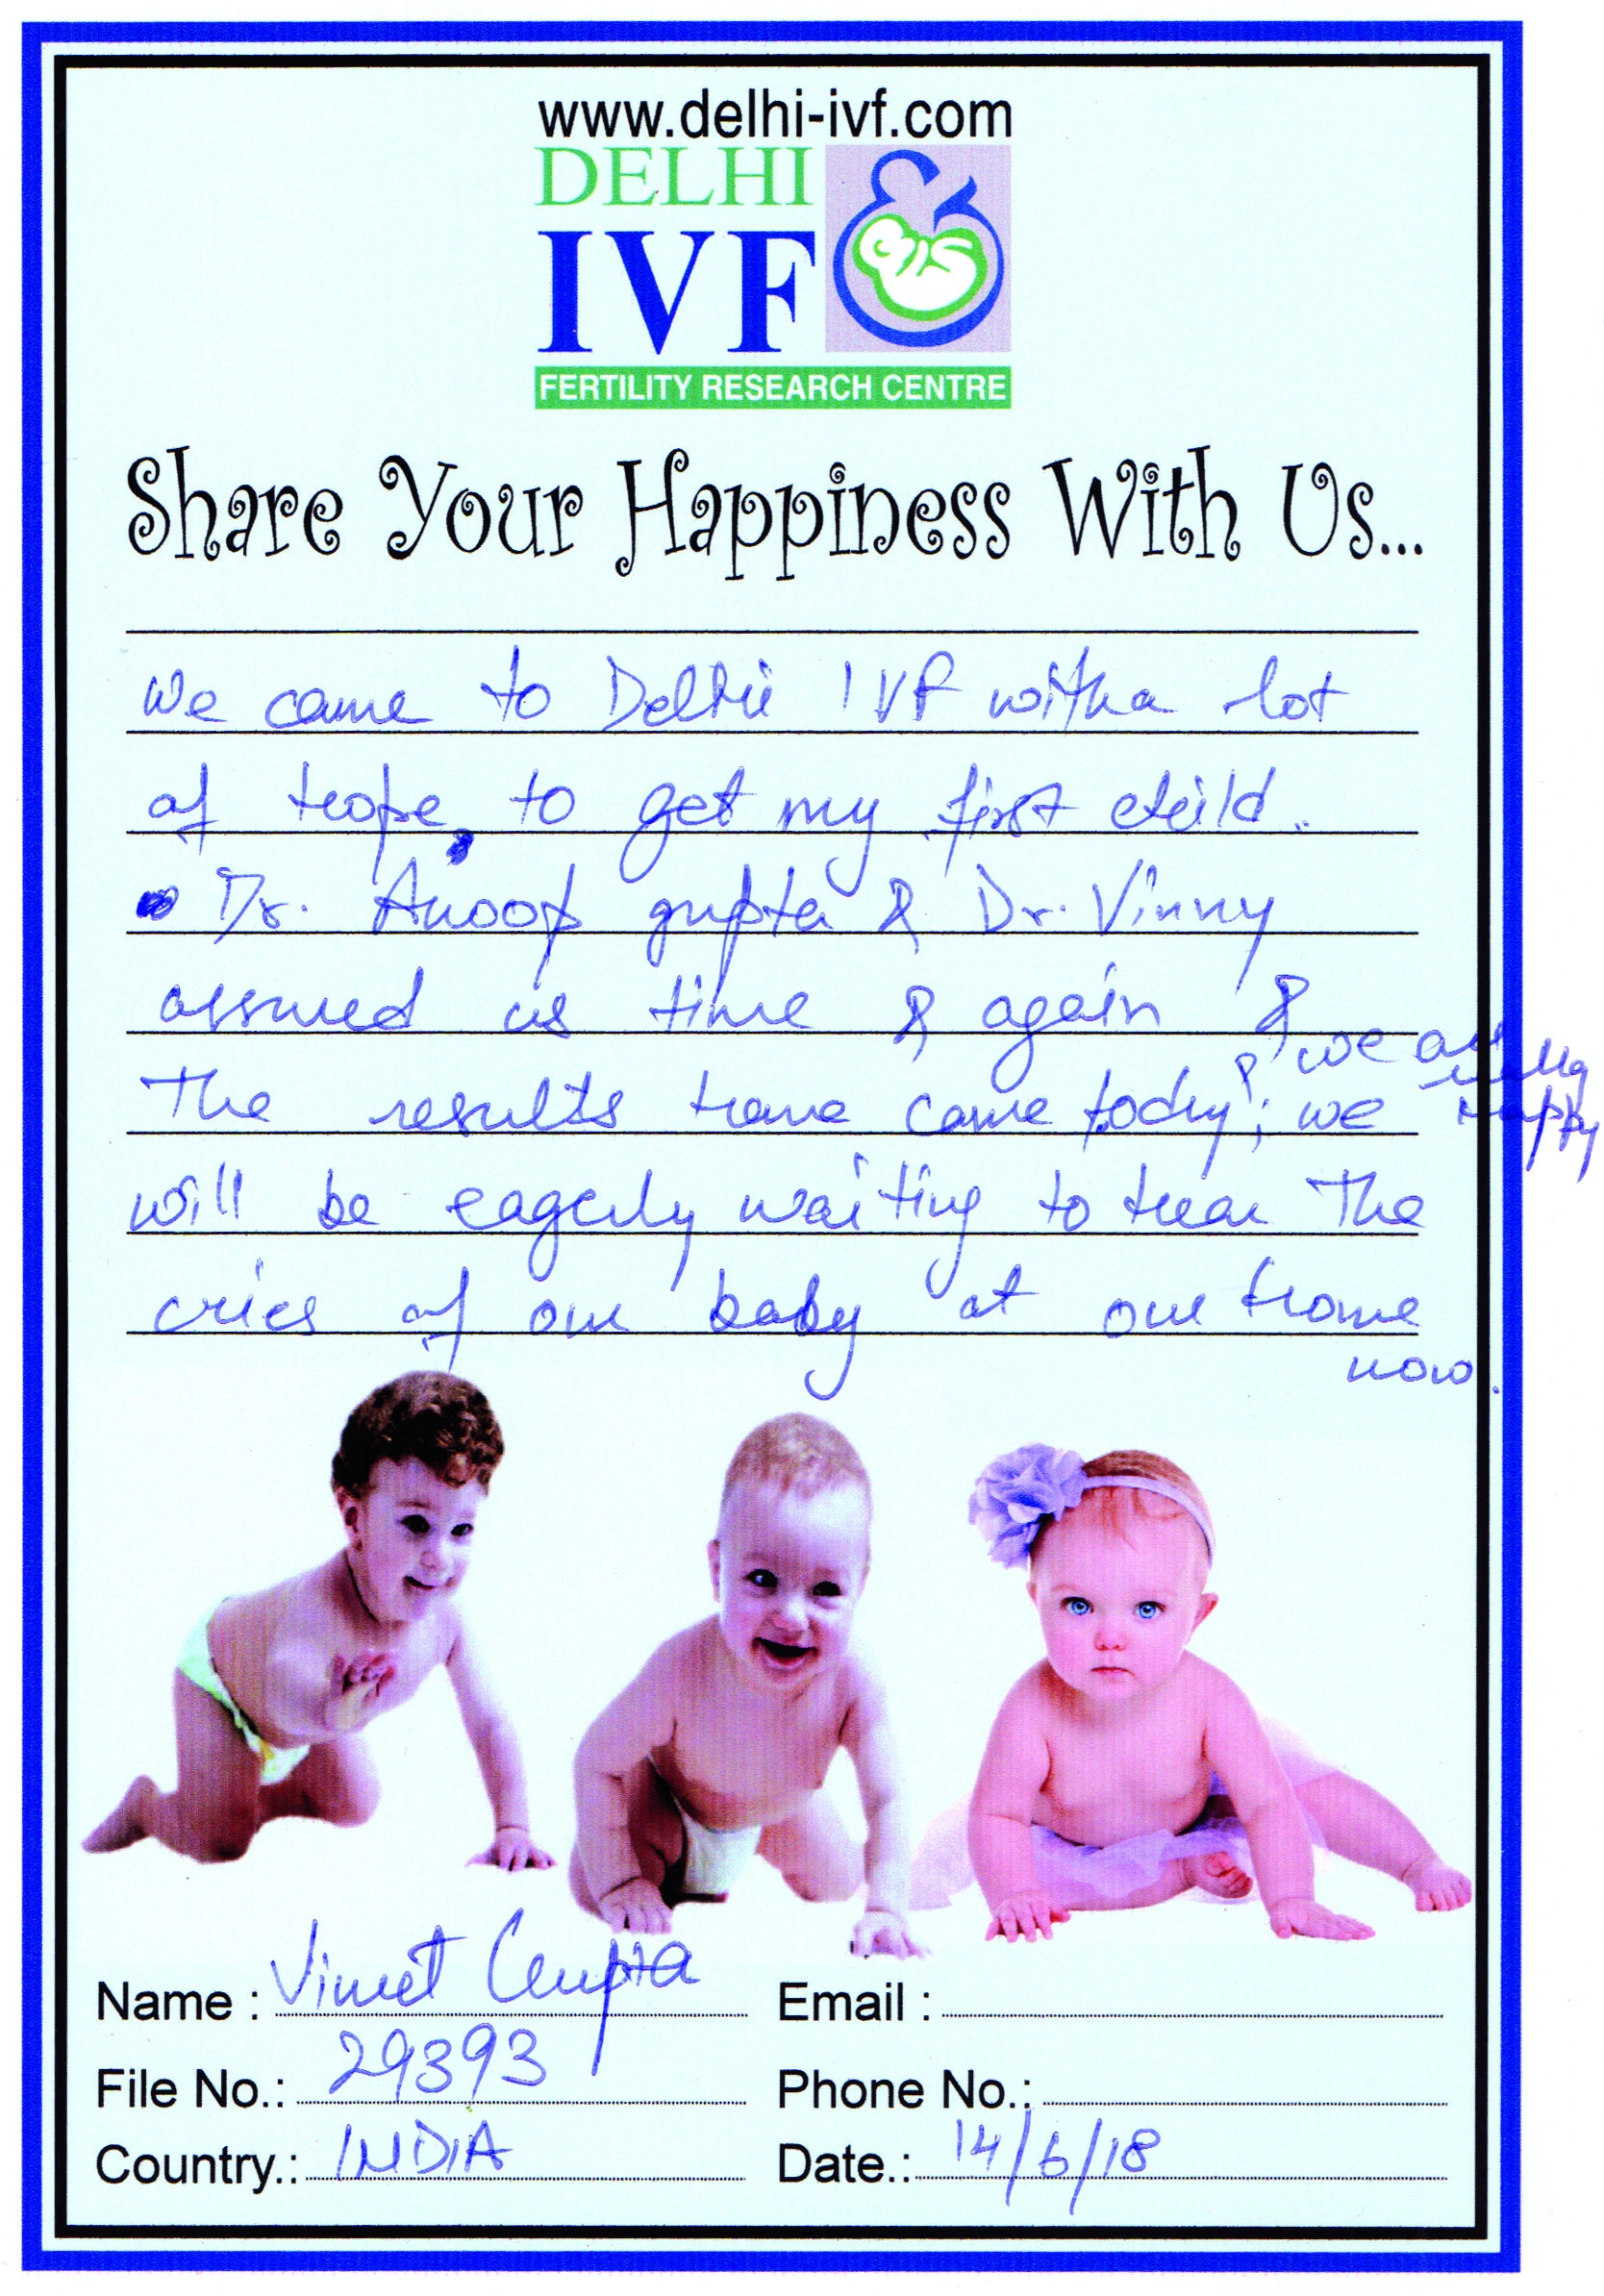 www.delhi-ivf.com
DELHI
IVF
FERTILITY RESEARCH CENTRE
Share Your Happiness With Us...
We came to Delhi IVF with a lot
of hope, to get my first child..
Dr. Anoop gupta & Dr. Vinny
assured us time & again &
The results have come today & we are really happy; we
will be eagerly waiting to hear The
cries of our baby at our home
now.
Name : Vineet Gupta
Email :
File No.: 29393
Phone No.:
Country.: INDIA
Date.: 14/6/18